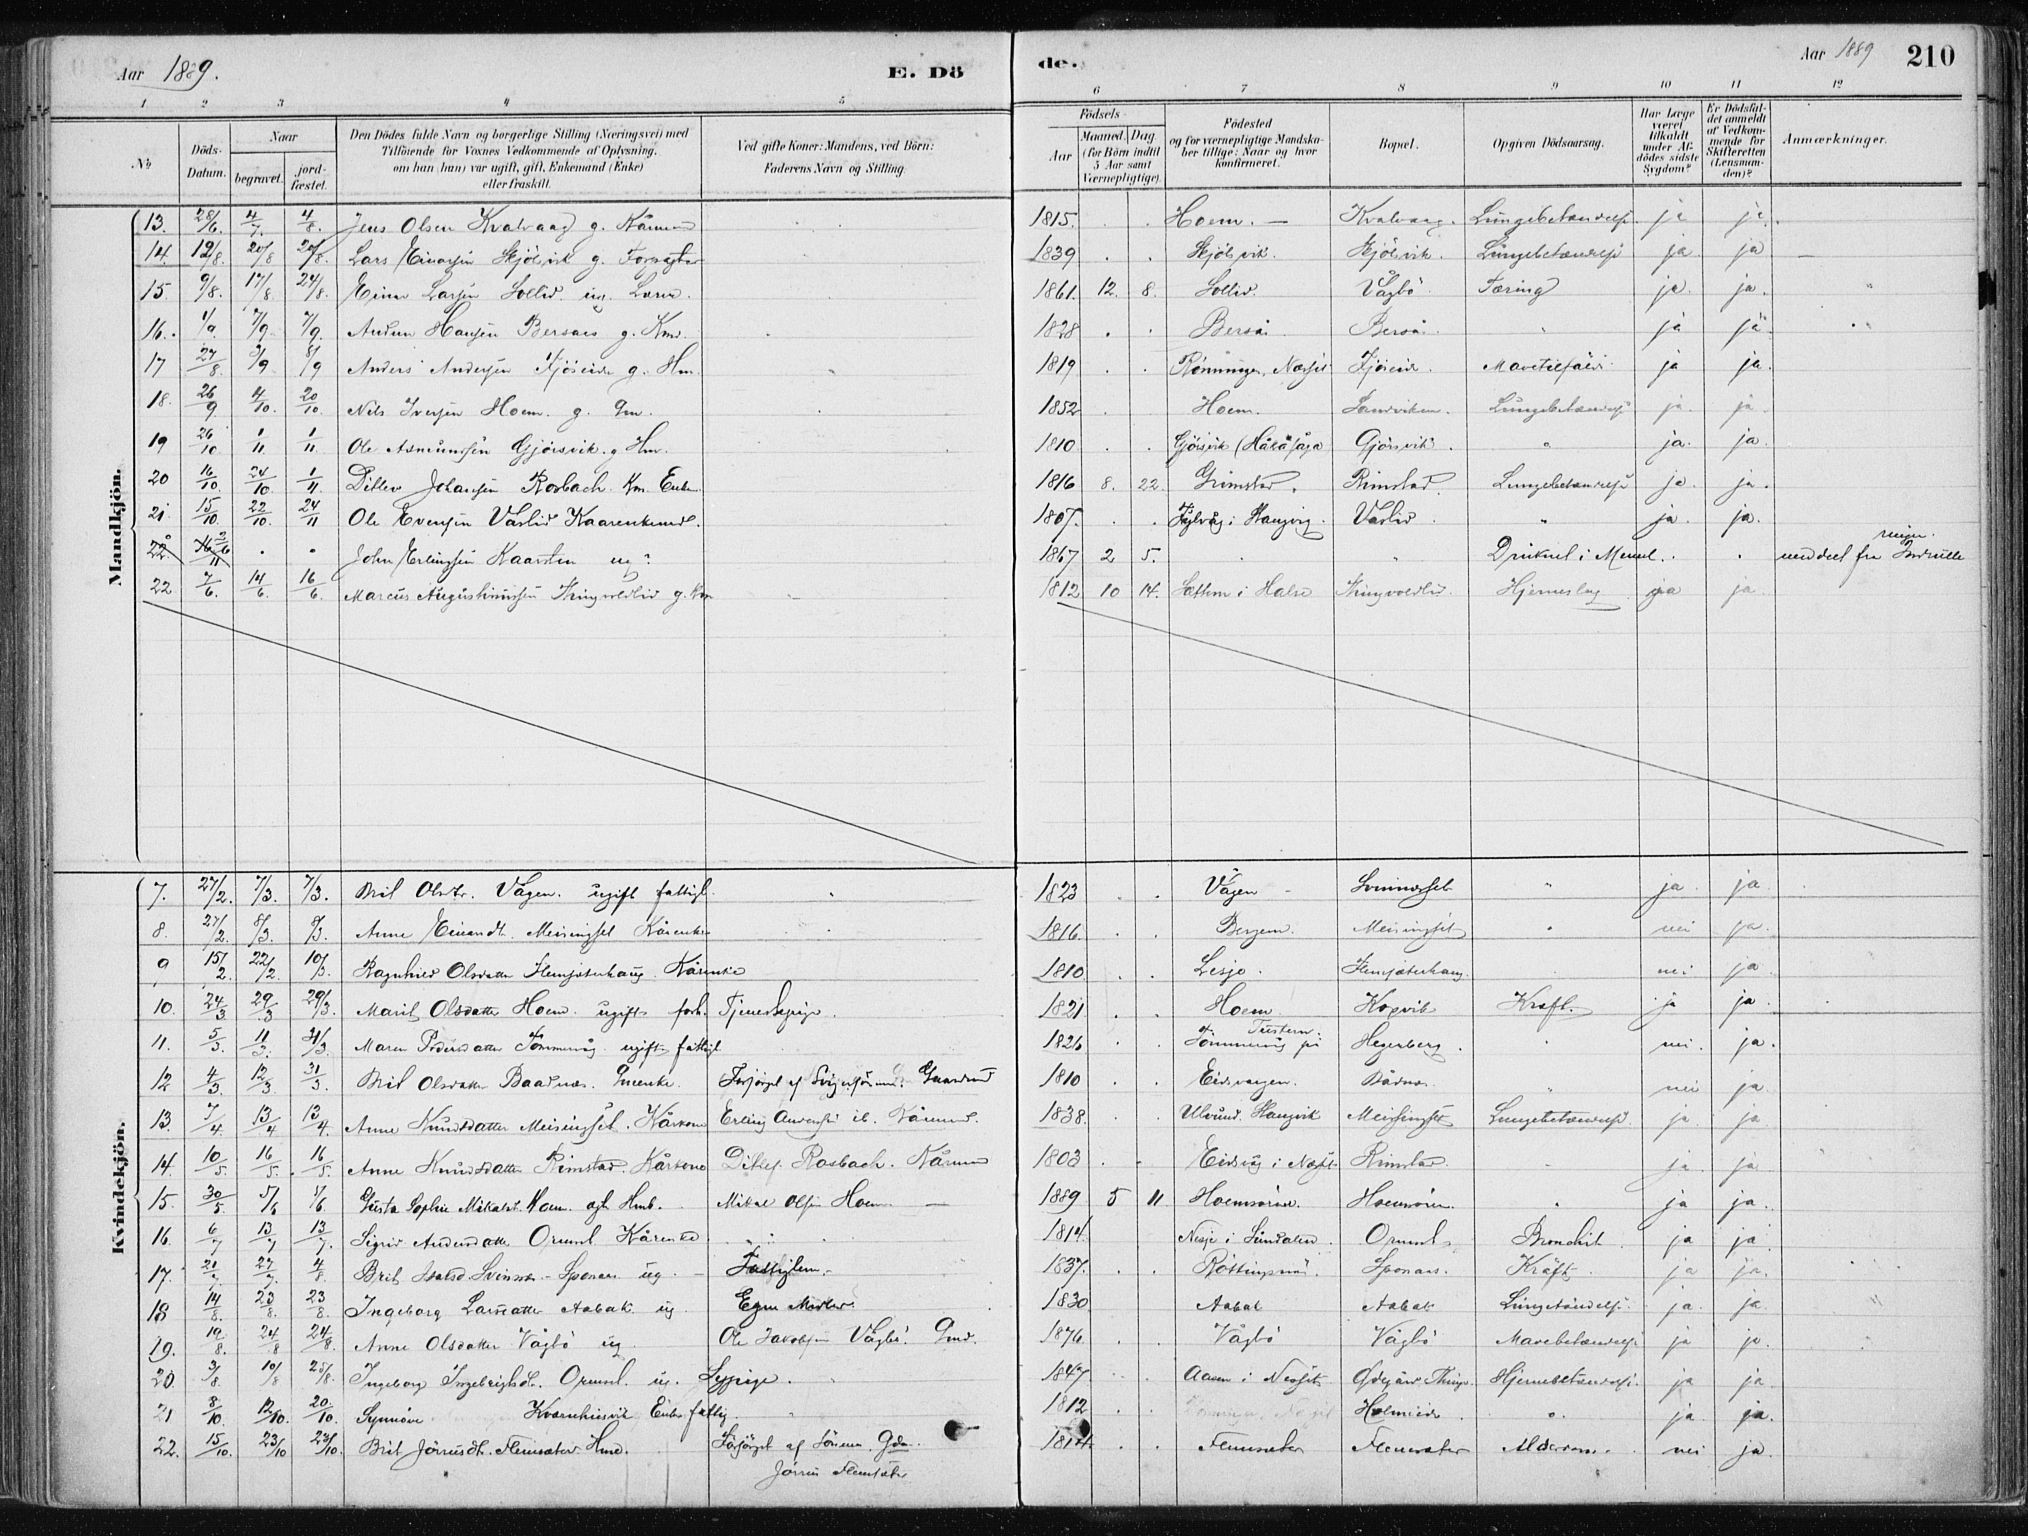 Aar 1889.
E. Dö
de.
Aar 1889
210
1 2 3 4 5 6 7 8 9 10 11 12
No
Döds-Datum.
Naar
begravet.
jord-fæstet.
Den Dödes fulde Navn og borgerlige Stilling (Næringsvei) med
Tilföiende for Voxnes Vedkommende af Oplysning,
om han (hun) var ugift, gift, Enkemand (Enke)
eller fraskilt.
Ved gifte Koner: Mandens, ved Börn:
Faderens Navn og Stilling.
Födsels-
Aar
Maaned. Dag.
(for Börn indtil
5 Aar samt
Værnepligtige).
Födested
og for værnepligtige Mandska-
ber tillige: Naar og hvor
konfirmeret.
Bopæl.
Opgiven Dödsaarsag.
Har Læge
været
tilkaldt
under Af-
dödes sidste
Sygdom?
Er Dödsfal-
det anmeldt
af Vedkom-
mende for
Skifteretten
(Lensman-
den)?
Anmærkninger.
Mandkjön.
13. 28/6. 4/7. 4/8. Jens Olsen Kvalvaag g. Kårmand 1815. Hoem. — Kvalvaag. Lungebetændelse ja ja.
14. 12/8. 20/8 20/8. Lars Einarsen Skjölsvik g. 1839 Skjölsvik. Skjölsvik. Lungebetændelse ja ja
15. 9/8. 17/8. 24/8. Einar Larsen Sollid ug. 1861. 12. 8. Sollid. Vågbö. Tæring ja. ja.
16. 1/9. 7/9. 7/9. Audun Hansen Bersaas g. Kmd. 1828 Berså. Berså. " ja ja
17 27/8 3/9 8/9 Anders Andersen Fjöseide g. Hm. 1819 Rönningen, Nesset Fjöseide. Mavetilfælde ja ja.
18. 26/9 4/10. 20/10. Nils Iversen Hoem. g. Gm. 1852 Hoem. Sandviken. Lungebetændelse ja. ja
19 26/10 1/11 1/11 Ole Asmundsen Gjörsvik. g. Hm. 1810 Gjörsvik Gjörsvik " ja. ja.
20 16/10. 24/10 1/11. Ditlev Johansen Rosbach. Km. Enkem. 1816 8. 22. Grimstad. Rimstad. Lungebetændelse ja. ja.
21. 15/10. 22/10. 24/11 Ole Evensen Vaslid Kaarenkemd. 1807. i Stangvig. Vaslid " ja. ja.
22. John Erlingsen Kaarsten ug? 1867 2 5. " Druknet i Memel. meddeelt fra
22 7/6. 14/6. 16/6. Marcus Augustinussen Tringvoldlid g. Km 1812 10 14. Sættem i Halse Tringvoldlid. Hjerneslag ja ja.
Kvindekjön.
7. 27/2. 7/3. 7/3. Brit Olsdtr. Vågen. ugift fattigl. 1823 Vågen Svinnesset " ja. ja.
8. 27/2. 8/3. 8/3. Anne Einarsdt. Meisingset Kårenke 1816. Bergem. Meisingset " nei ja.
9 15/2. 22/2. 10/3. Ragnhild Olsdatter Flemsæterhaug. Kårenke 1810 Lesje. Flemsæterhaug. nei ja
10. 24/3 29/3 29/3. Marit Olsdatter Hoem ugift forh. Tjenestepige. 1821 Hoem Kopvik Kræft. ja ja.
11. 5/3. 11/3. 31/3. Maren Pedersdatter Tömmervåg ugift fattigl 1826 Tömmervåg på Tustern. Hegerberg. nei. ja.
12 4/3 12/3 31/3. Brit Olsdatter Baadnes. Gmenke. Forsörget af Svigersönnen Gaardmd 1810 Eidsvaagen. Bådnes. " nei ja.
13. 7/4 13/4 13/4. Anne Knudsdatter Meisingset. Kårkone Erling ib. Kårmand. 1838. Ulvund. Stangvik Meisingset Lungebetændelse. ja ja.
14. 10/5. 16/5. 16/5. Anne Knudsdatter Rimstad. Kårkone Ditlef Rosbach. Kårmand 1803 Eidsvåg i Nesset Rimstad. ja. ja
15. 30/5. 5/6 1/6. Gusta Sophie Mikalsdt. Hoem. ægte Hmb. Mikal Olsen Hoem 1889 5 11. Hoemsören. Hoemsören. " ja ja.
16. 6/7 13/7 13/7. Sigrid Andersdatter Ormset Kårenke 1814. Nisje i Sundalen. Ormset Bronchit. ja ja
17. 21/7. 27/7. 4/8 Brit Isaksd. Svinnes - Sponaas ug. Fattiglem. 1837. Röttingsnes. Sponaas. Kræft ja ja.
18 14/8. 23/8. 23/8. Ingeborg Larsdatter Aabak ug Egne Midler. 1830 Aabak Aabak Lungebetændelse. ja. ja.
19. 19/8. 24/8. 24/8. Anne Olsdatter Vågbö ug Ole Jakobsen Vågbö. Gmd. 1876. Vågbö Vågbö Mavebetændelse ja ja
20. 3/8. 10/8 25/8. Ingeborg Ingebrigtsdt. Ormset. ug. Leypige. 1847 Aasen i Nesset Hjernebetændelse. ja ja
21 8/10. 12/10. 20/10. Synnöve Kvernhusvik Enke. fattig 1812 Holmeide " ja. ja.
22. 15/10. 23/10 23/10. Brit Jörnsdt. Flemsæter Hmd. Forsörget af Sönnen Gdm. Jörn Flemsæter 1814. Flemsæter Flemsæter Alderdom. nei ja